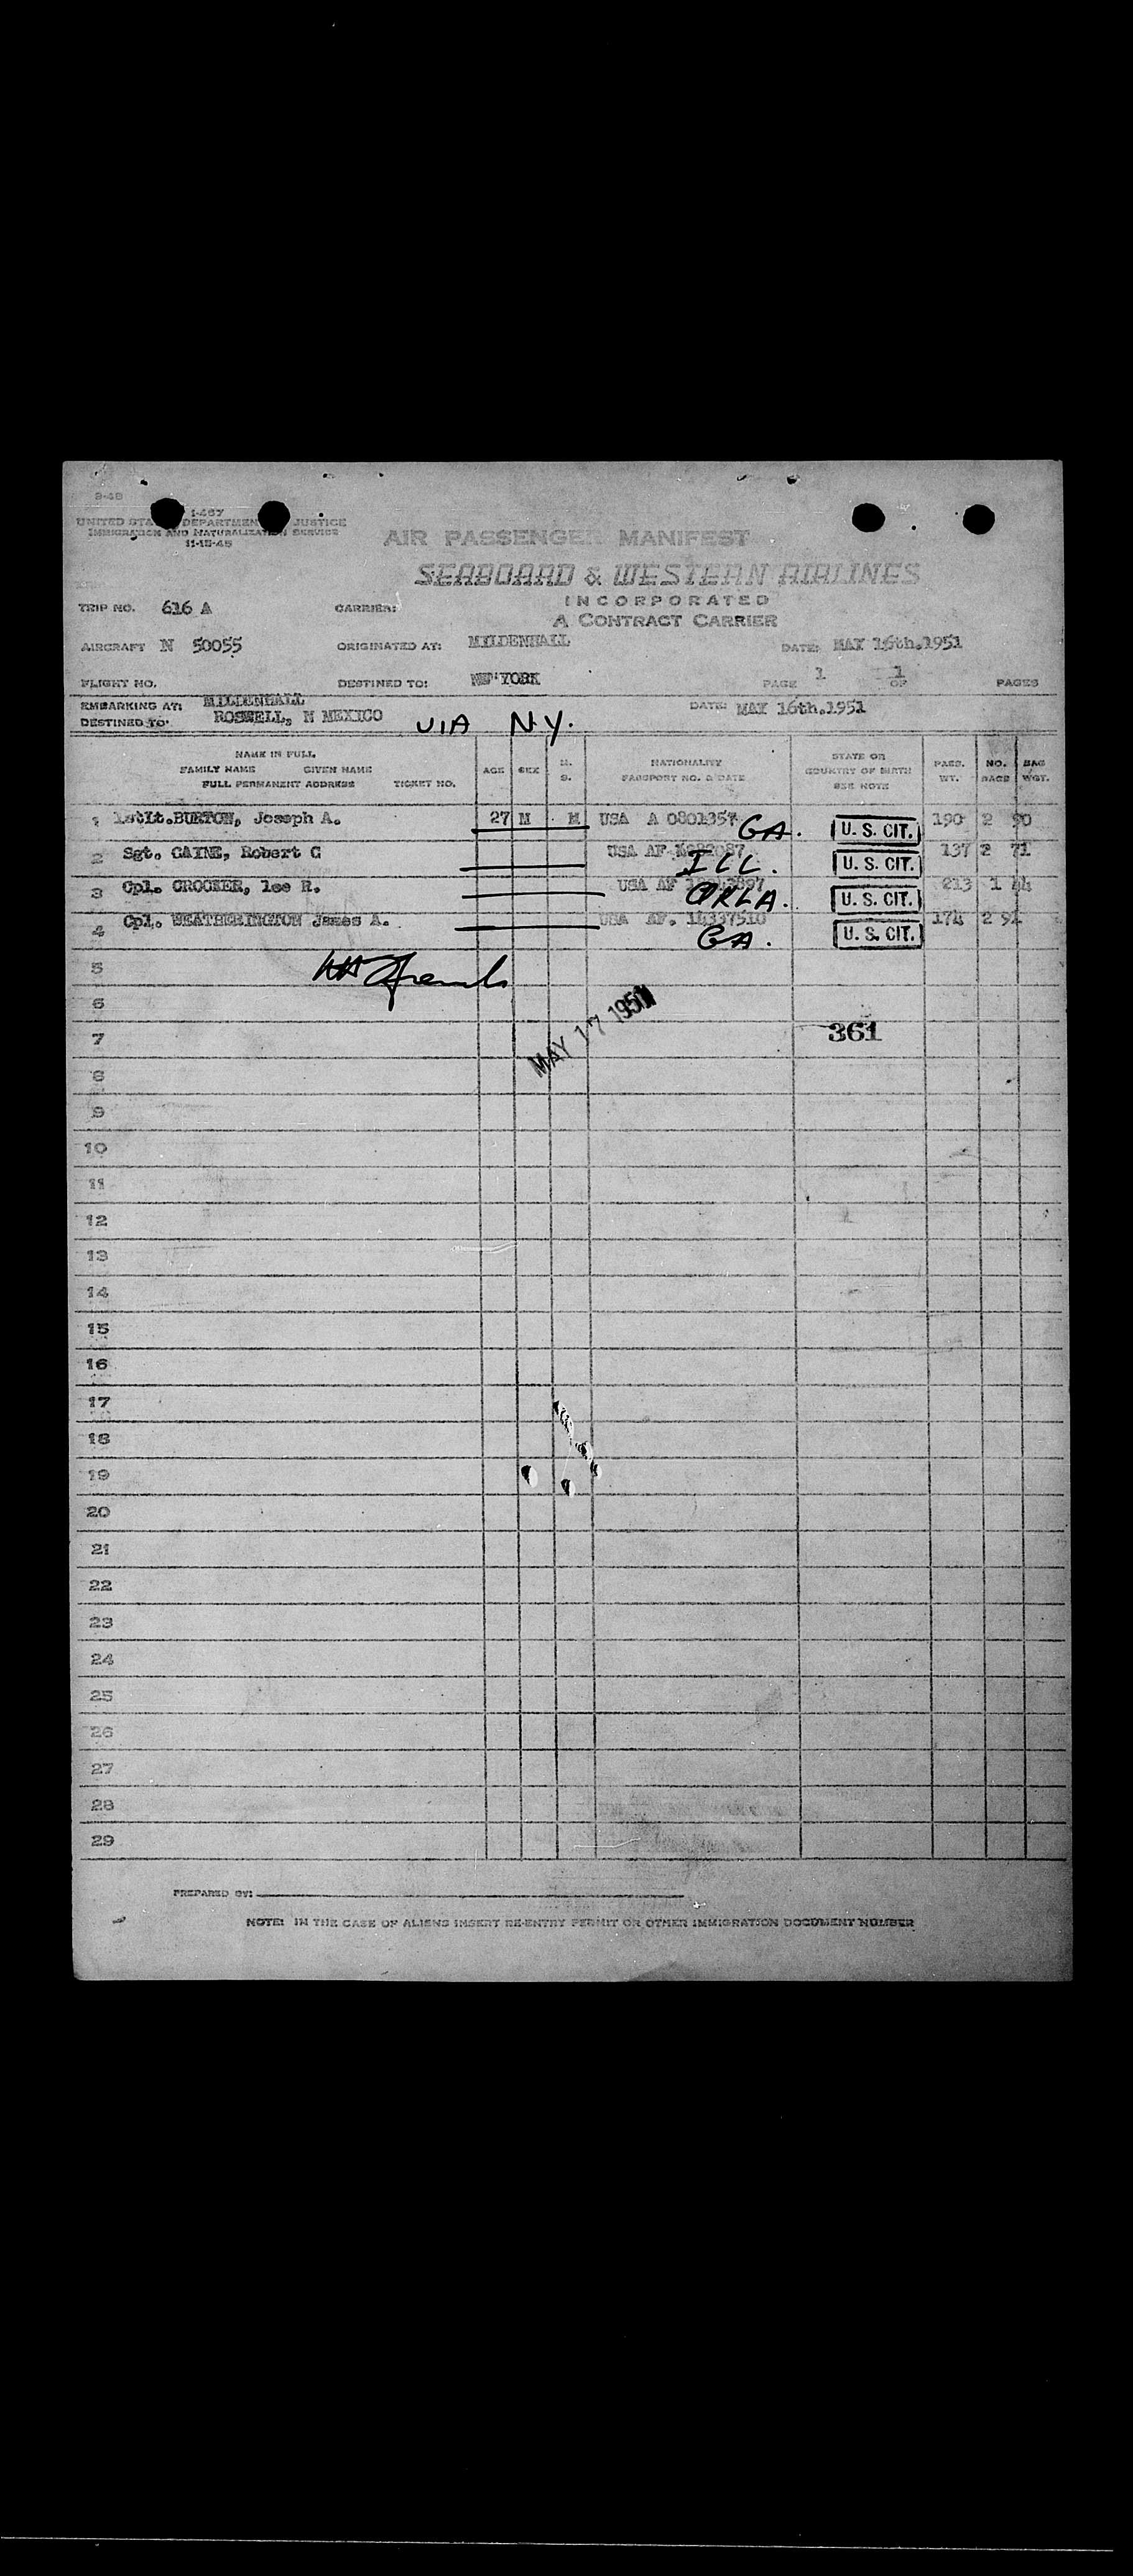 9-49
I-467
UNITED STA DEPARTMEN JUSTICE
IMMIGRATION AND NATURALIZATION SERVICE
11-15-45
AIR PASSENGER MANIFEST
SEABOARD & WESTERN AIRLINES
INCORPORATED
A CONTRACT CARRIER
TRIP NO. 616 A CARRIER:
AIRCRAFT N 50055 ORIGINATED AT: MILDENHALL DATE: MAY 16th.1951
FLIGHT NO. DESTINED TO: NEW YORK PAGE 1 OF 1 PAGES
EMBARKING AT: MILDENHALL DATE: MAY 16th.1951
DESTINED TO: ROSWELL, N MEXICO VIA N.Y.
NAME IN FULL
FAMILY NAME GIVEN NAME
FULL PERMANENT ADDRESS TICKET NO.
AGE SEX M. S.
NATIONALITY
PASSPORT NO. & DATE
STATE OR
COUNTRY OF BIRTH
SEE NOTE
PASS. WT. NO. BAGS BAG WGT.
1 1stLt.BURTON, Joseph A. 27 M M USA A 0801357 GA. U. S. CIT. 190 2 90
2 Sgt. CAINE, Robert C USA AF ILL. U. S. CIT. 137 2 71
3 Cpl. CROCKER, lee R. USA AF U. S. CIT. 213 1 44
4 Cpl. WEATHERINGTON James A. USA AF. 14337510 GA. U. S. CIT. 174 2 94
5
6
MAY 17 1951
7 361
8
9
10
11
12
13
14
15
16
17
18
19
20
21
22
23
24
25
26
27
28
29
PREPARED BY:
NOTE: IN THE CASE OF ALIENS INSERT RE-ENTRY PERMIT OR OTHER IMMIGRATION DOCUMENT NUMBER